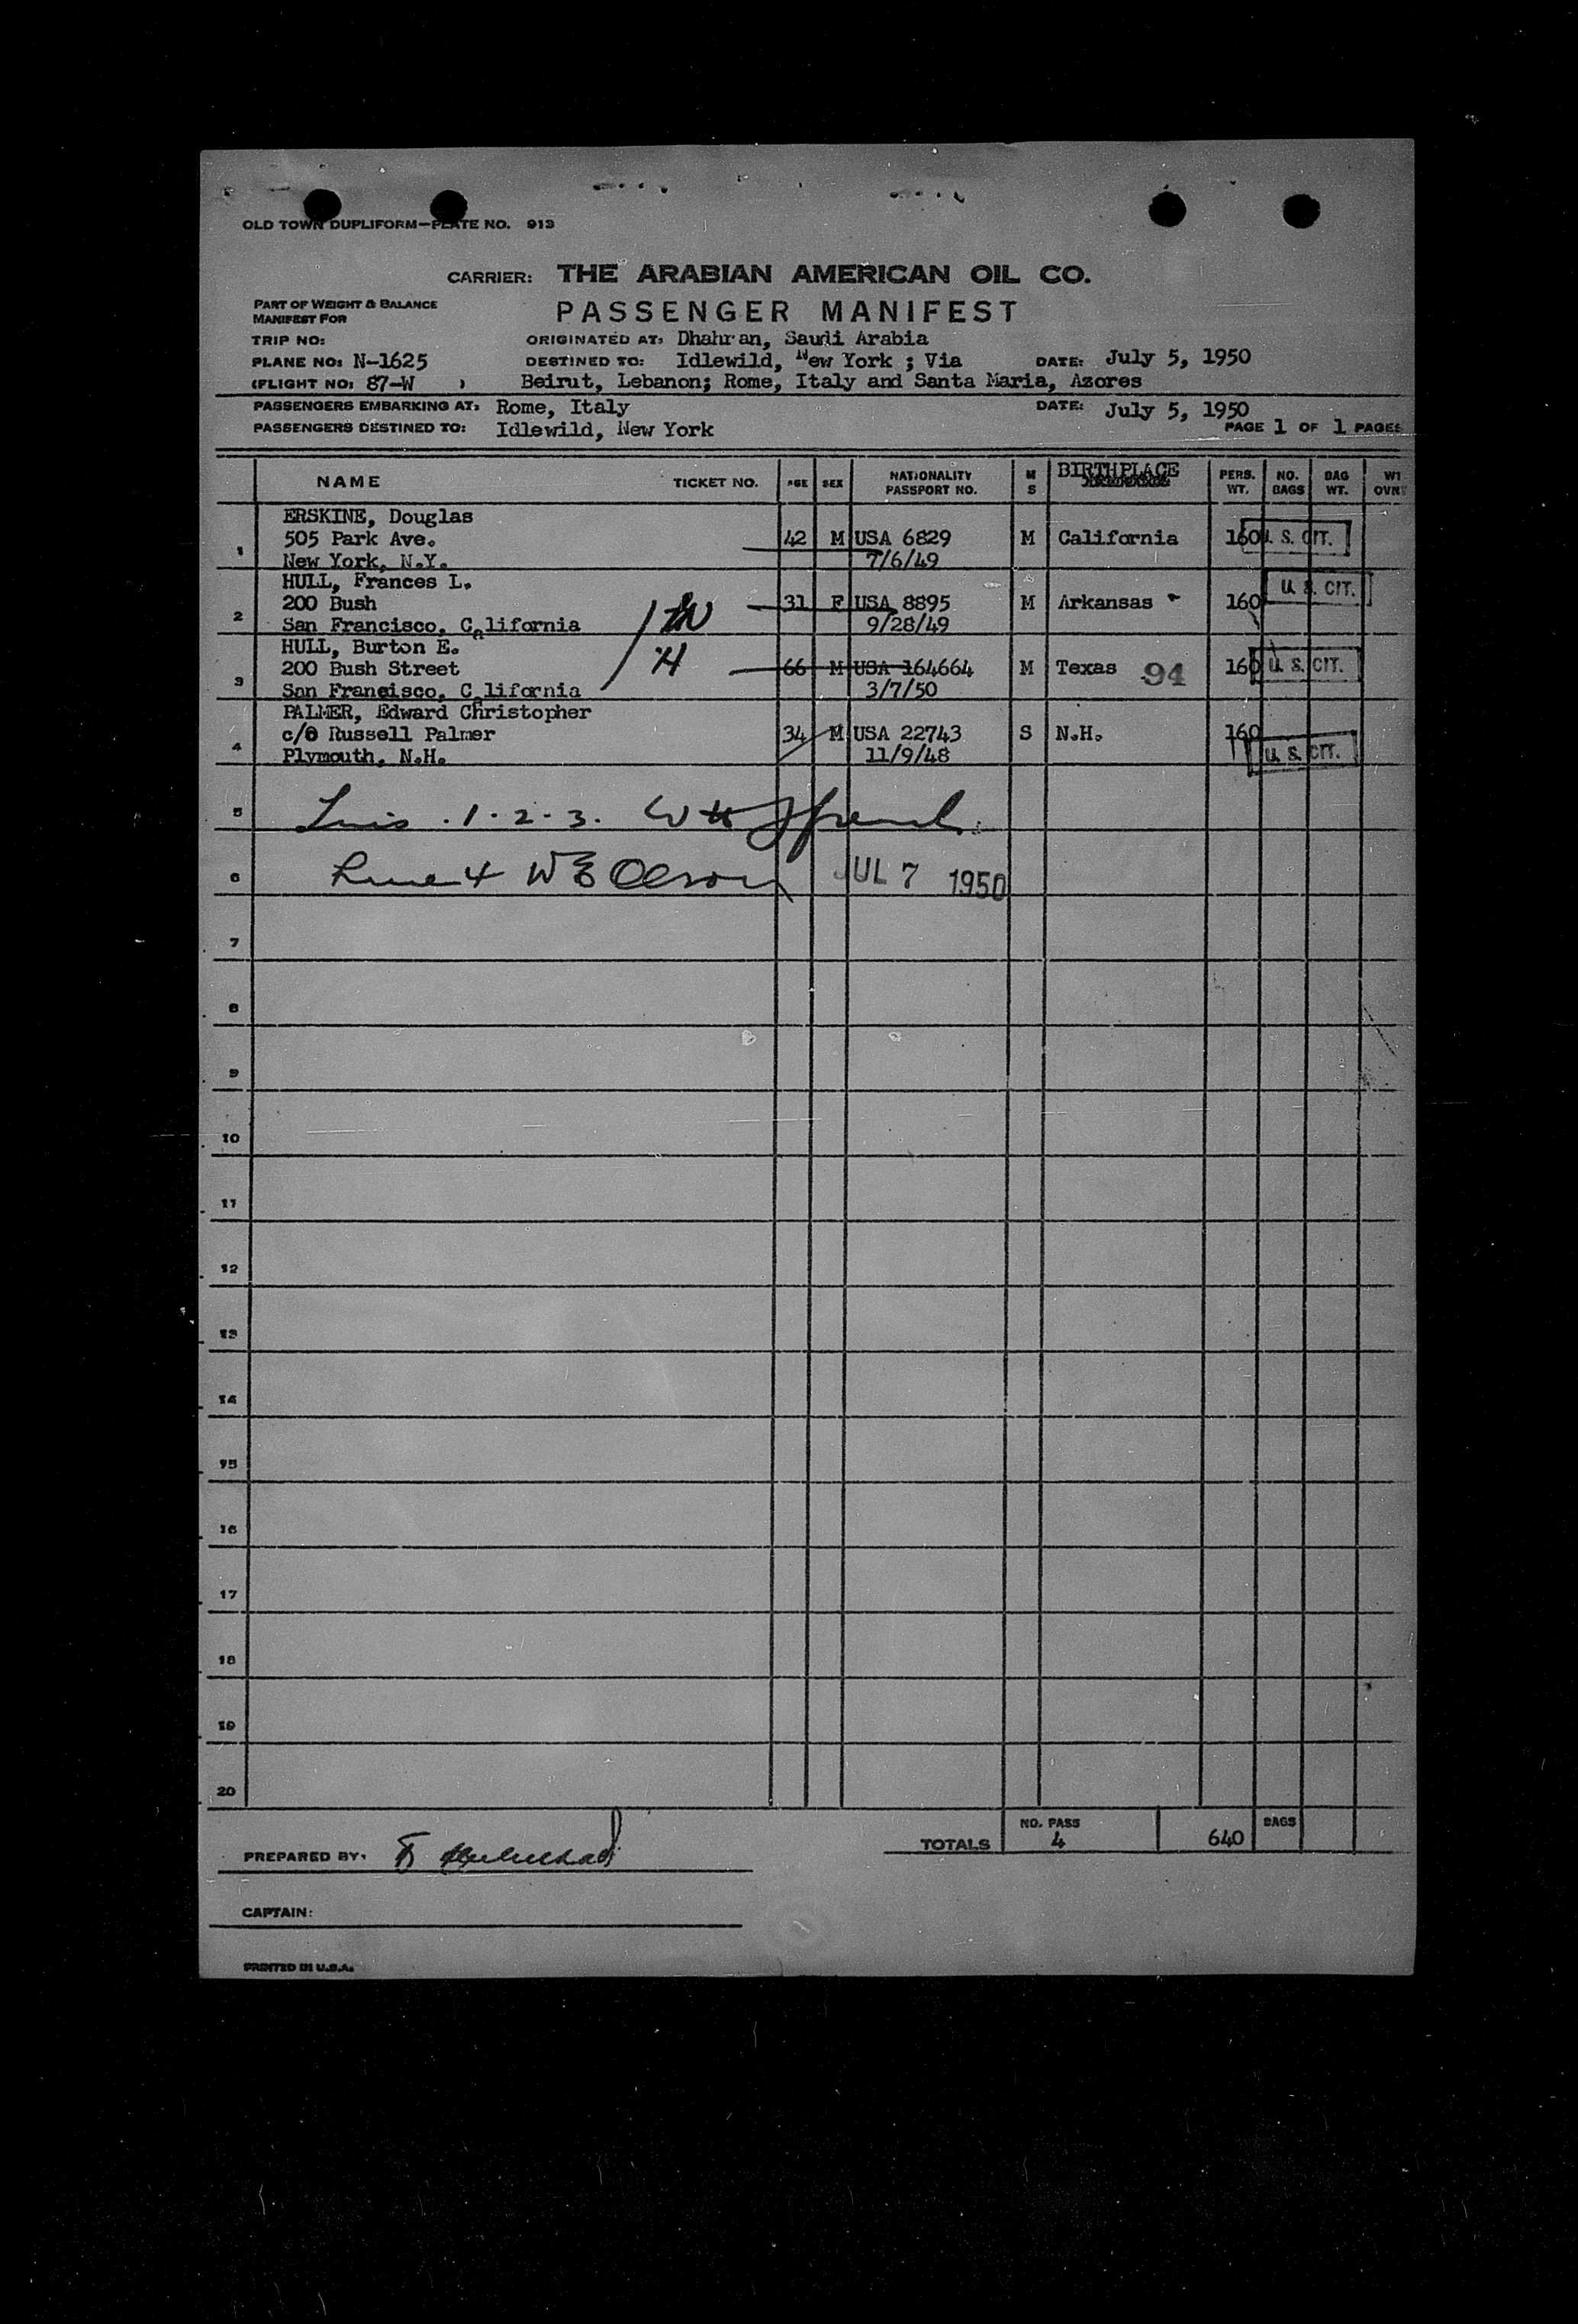 OLD TOWN DUPLIFORM—PLATE NO. 913
CARRIER: THE ARABIAN AMERICAN OIL CO.
PART OF WEIGHT & BALANCE
MANIFEST FOR
PASSENGER MANIFEST
TRIP NO: ORIGINATED AT: Dhahran, Saudi Arabia
PLANE NO: N-1625 DESTINED TO: Idlewild, New York ; Via DATE: July 5, 1950
(FLIGHT NO: 87-W ) Beirut, Lebanon; Rome, Italy and Santa Maria, Azores
PASSENGERS EMBARKING AT: Rome, Italy DATE: July 5, 1950
PASSENGERS DESTINED TO: Idlewild, New York PAGE 1 OF 1 PAGES
NAME TICKET NO. AGE SEX NATIONALITY PASSPORT NO. M S BIRTHPLACE PERS. WT. NO. BAGS BAG WT. WT OVN
ERSKINE, Douglas
1 505 Park Ave. 42 M USA 6829 M California 160 U. S. CIT.
New York, N.Y. 7/6/49
HULL, Frances L.
2 200 Bush 31 F USA 8895 M Arkansas 160 U. S. CIT.
San Francisco, California 9/28/49
HULL, Burton E.
3 200 Bush Street 66 M USA 164664 M Texas 94 160 U. S. CIT.
San Francisco, California 3/7/50
PALMER, Edward Christopher
4 c/o Russell Palmer 34 M USA 22743 S N.H. 160 U. S. CIT.
Plymouth, N.H. 11/9/48
5 1-2-3.
6 4 W E Olson JUL 7 1950
7
8
9
10
11
12
13
14
15
16
17
18
19
20
TOTALS NO. PASS 4 640 BAGS
PREPARED BY:
CAPTAIN:
PRINTED IN U.S.A.